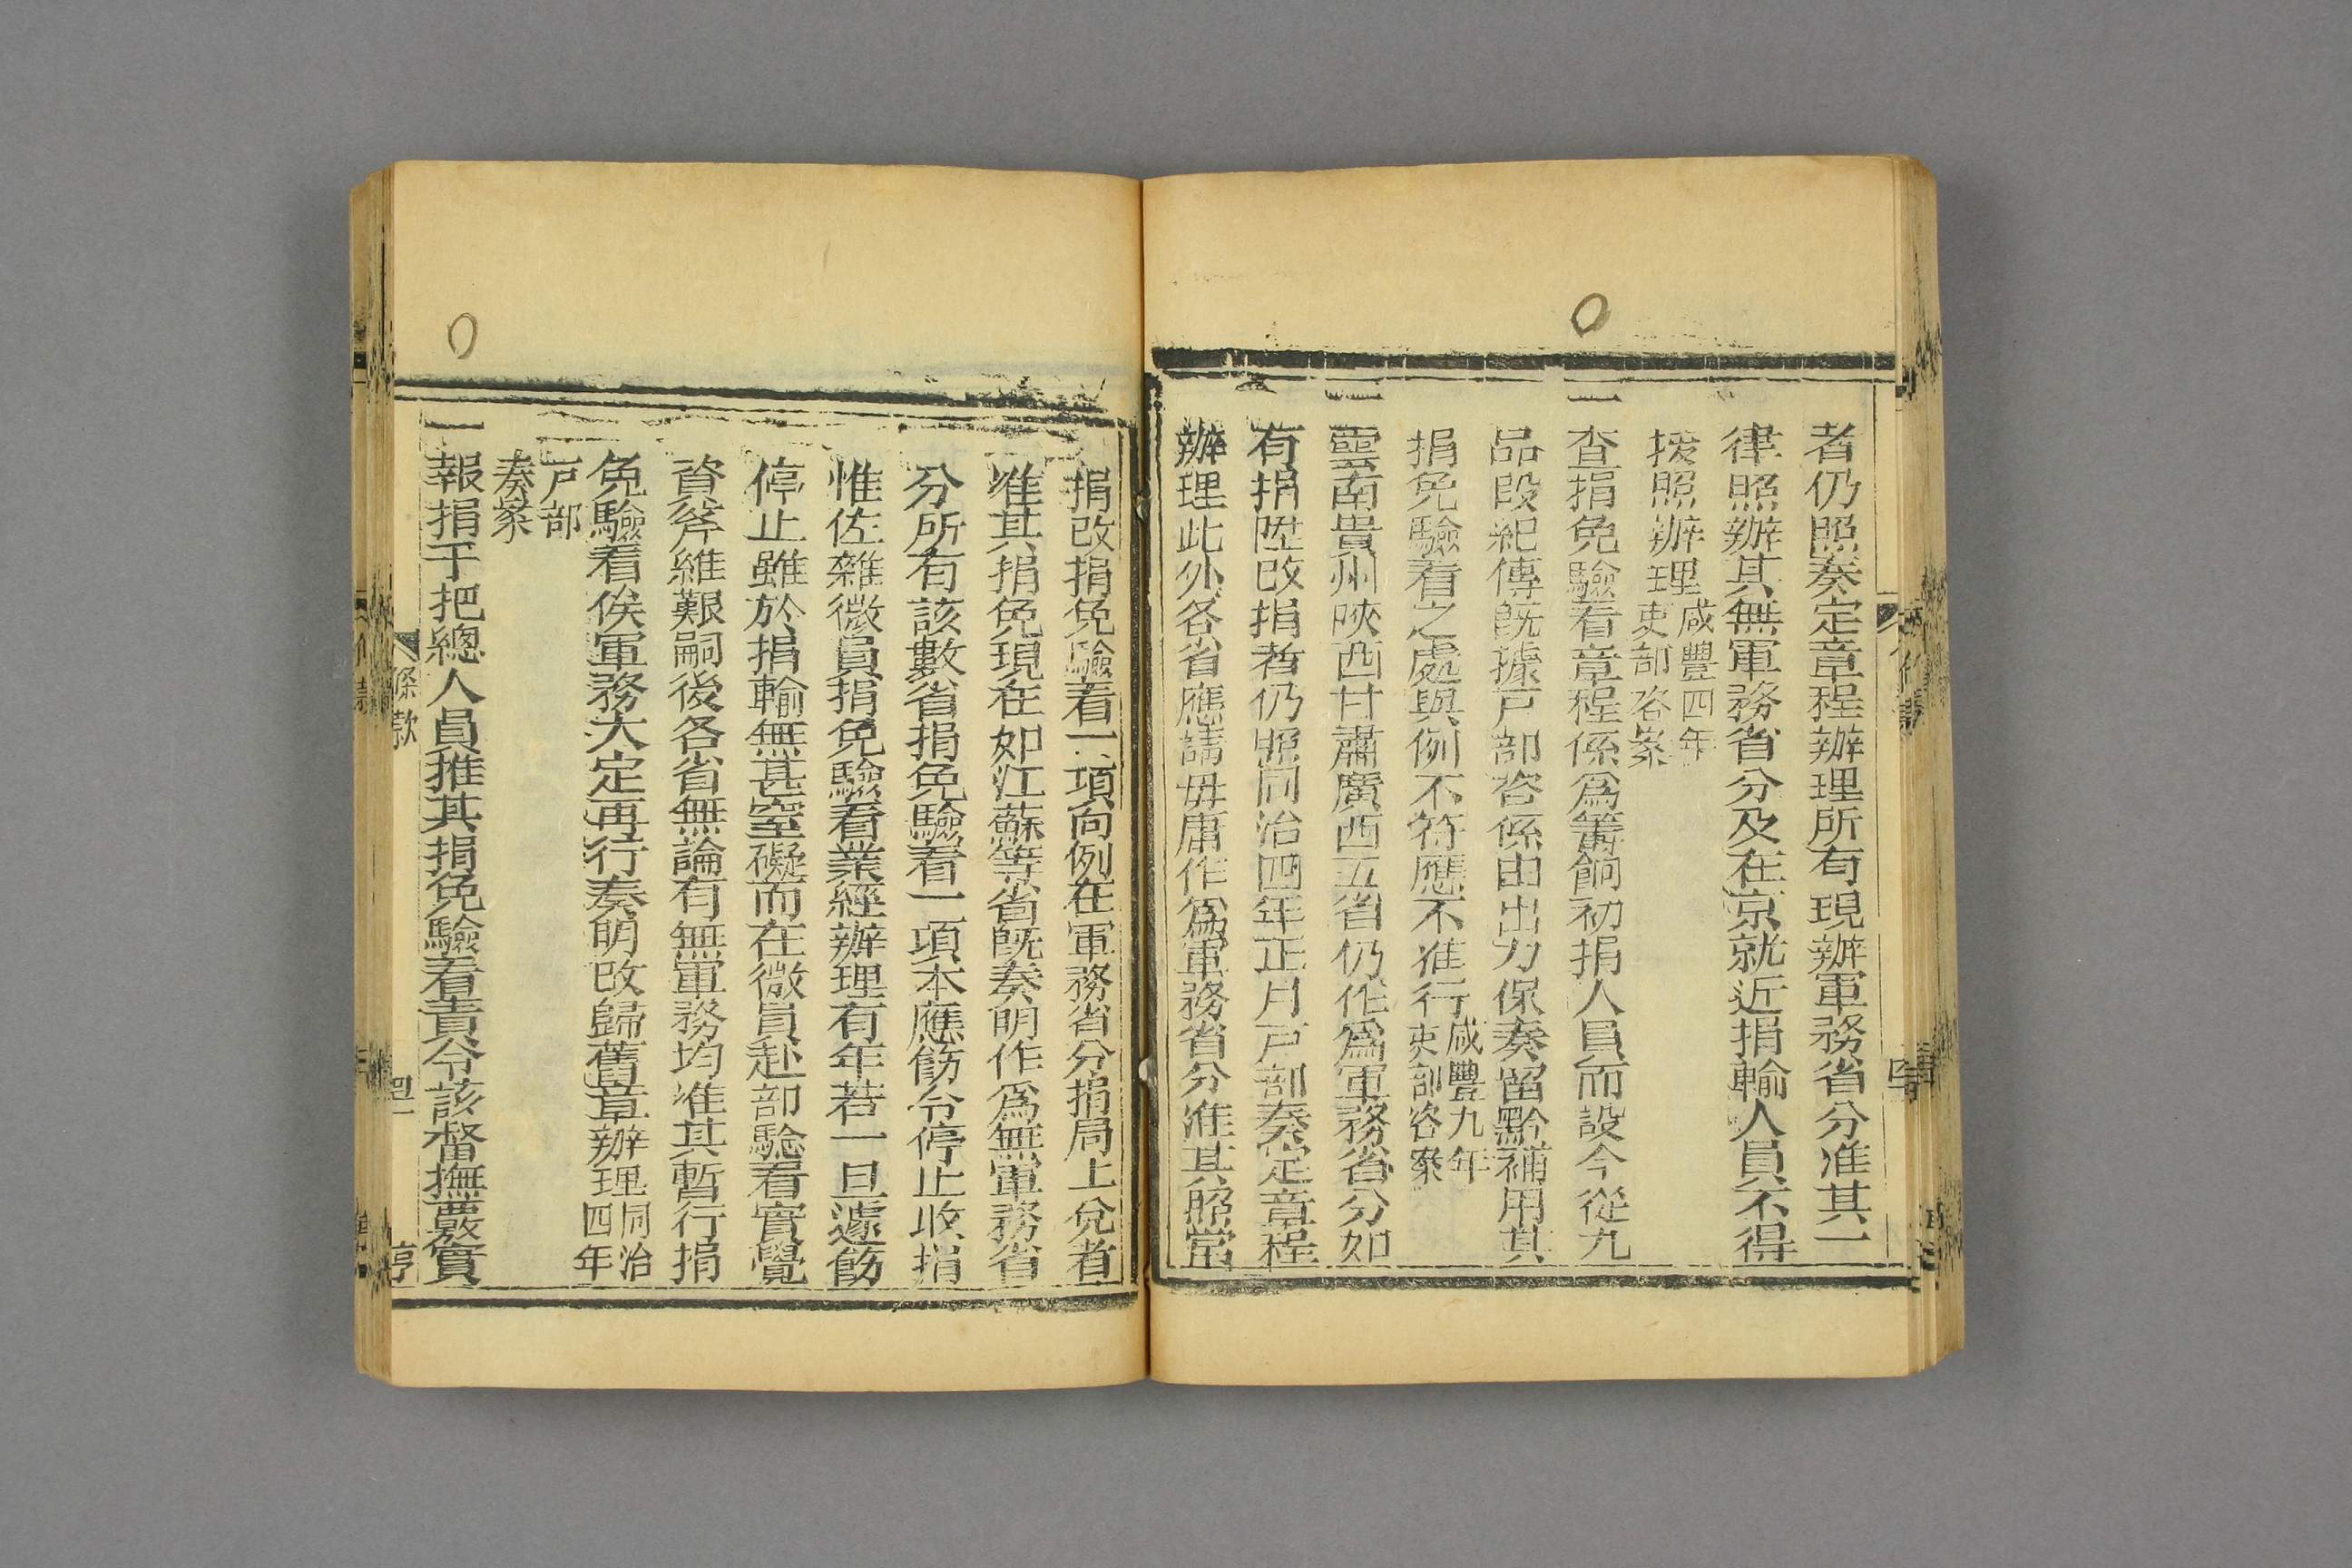 者仍照奏定章程辦理所有現辦軍務省分准其一
律照辦其無軍務省分及在京就近捐輸人員不得
援照辦理咸豐四年吏部咨案
一查捐免驗看章程係爲籌餉初捐人員而設今從九
品段紀傳既據戸部咨係由出力保奏留黔補用其
捐免驗看之處與例不符應不准行咸豐九年吏部咨案
一雲南貴州陝西甘肅廣西五省仍作爲軍務省分如
有捐陞改捐者仍照同治四年正月戸部奏定章程
辦理此外各省應請毋庸作爲軍務省分准其照常
捐改捐免驗看一項向例在軍務省分捐局上兌者
准其捐免現在如江蘇等省既奏明作爲無軍務省
分所有該數省捐免驗看一項本應飭令停止收捐
惟佐雜微員捐免驗看業經辦理有年若一旦遽飭
停止雖於捐輸無甚窒礙而在微員赴部驗看實覺
資斧維艱嗣後各省無論有無軍務均准其暫行捐
免驗看俟軍務大定再行奏明改歸舊章辦理同治四年
戸部奏案
一報捐千把總人員推其捐免驗看責令該督撫覈實
條款
亨